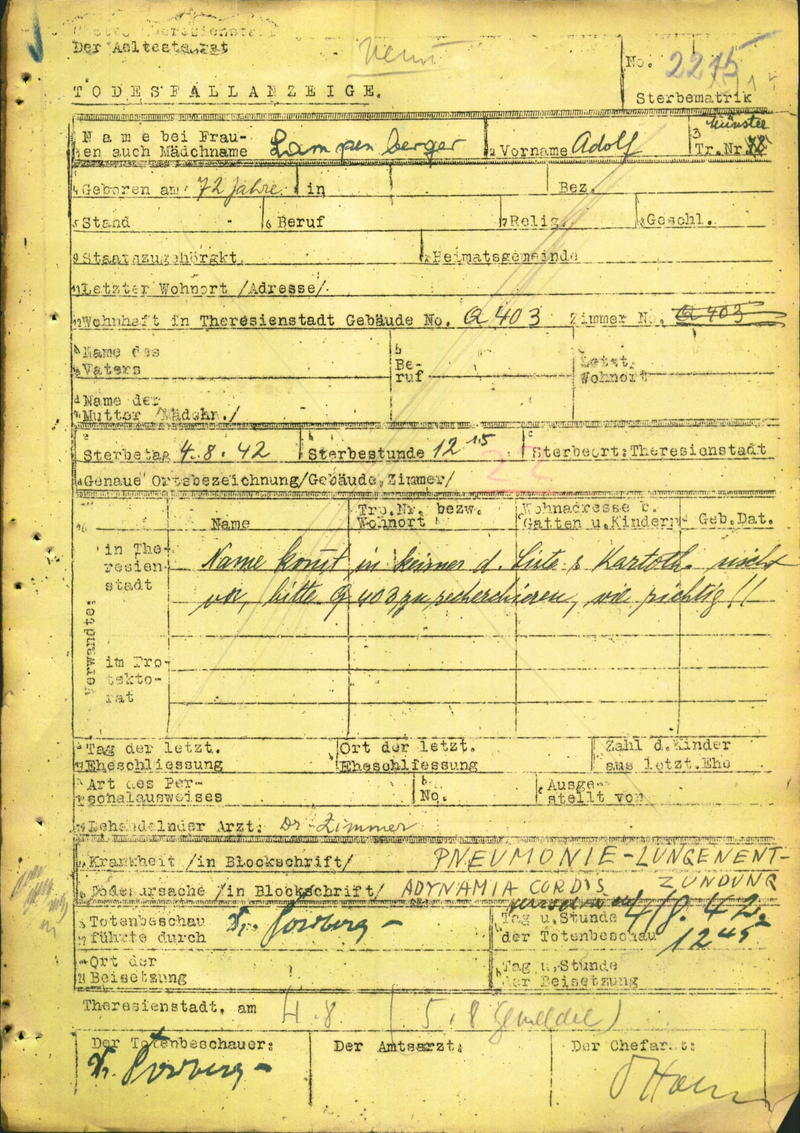 Der Aeltestenrat
No. 2275
TODESFALLANZEIGE.
Sterbematrik
Name bei Frau-
en auch Mädchname Lampenberger Vorname Adolf Münster Tr.Nr.
Geboren am 72 Jahre in Bez.
Stand Beruf Relig. Geschl.
Staatszugehörgkt. Heimatsgemeinde
Letzter Wohnort /Adresse/
Wohnhaft in Theresienstadt Gebäude No. Q 403 Zimmer N. Q 403
Name des Vaters Beruf Letzt. Wohnort
Name der
Mutter /Mädchn./
Sterbetag 4.8.42 Sterbestunde 12 15 Sterbeort: Theresienstadt
Genaue Ortsbezeichnung/Gebäude, Zimmer/
Name Trp.Nr. bezw. Wohnort Wohnadresse d. Gatten u. Kinder Geb.Dat.
Verwandte:
in The-
resien-
stadt
Name komt in keiner d. Liste & Kartoth. nicht
vor, bitte Q 403 zu recherchieren, wie richtig!!
im Pro-
tekto-
rat
Tag der letzt. Eheschliessung Ort der letzt. Eheschliessung Zahl d. Kinder aus letzt. Ehe
Art des Per-
sonalausweises No. Ausge-
stellt von
Behandelnder Arzt: Dr. Zimmer
Krankheit /in Blockschrift/ PNEUMONIE-LUNGENENT-
ZÜNDUNG
Todesursache /in Blockschrift/ ADYNAMIA CORDIS
Totenbeschau führte durch Dr. Tag u. Stunde der Totenbeschau 4/8. 42. 12 45
Ort der Beisetzung Tag u. Stunde der Beisetzung
Theresienstadt, am 4.8 (5.8 gemeldet)
Der Totenbeschauer: Der Amtsarzt: Der Chefarzt:
Dr.